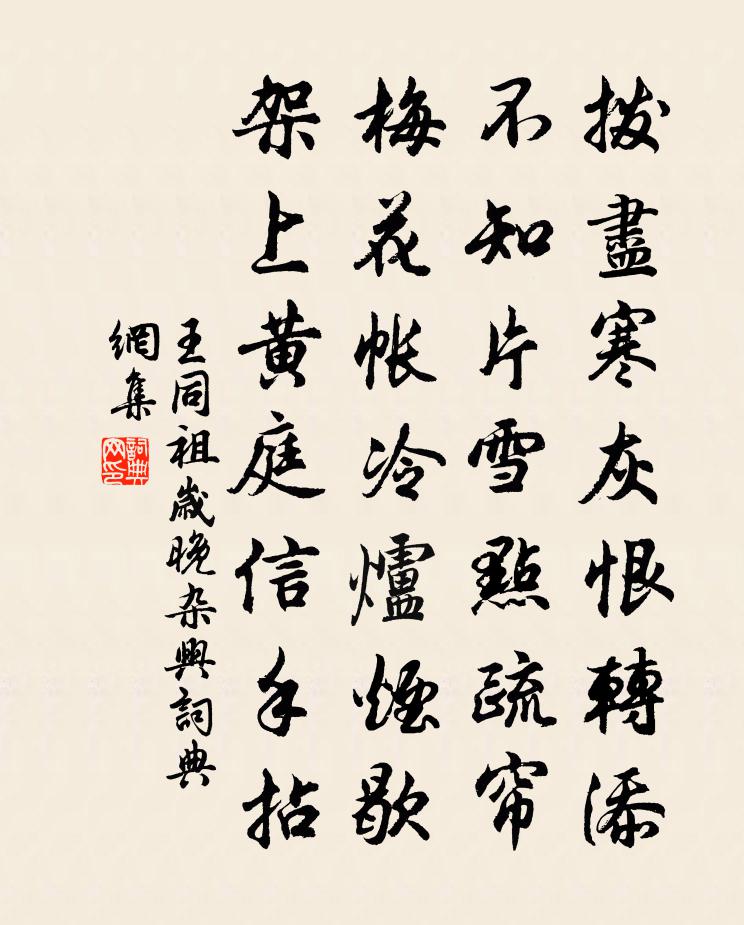 撥盡寒灰恨轉添
不知片雪點疏帘
梅花帐冷爐煙歇
架上黄庭信手拈
王同祖歲晚杂興詞典
網集
詞典網印